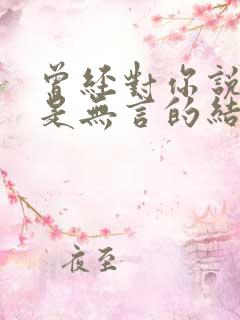 曾經對你說
是無言的結
夜至